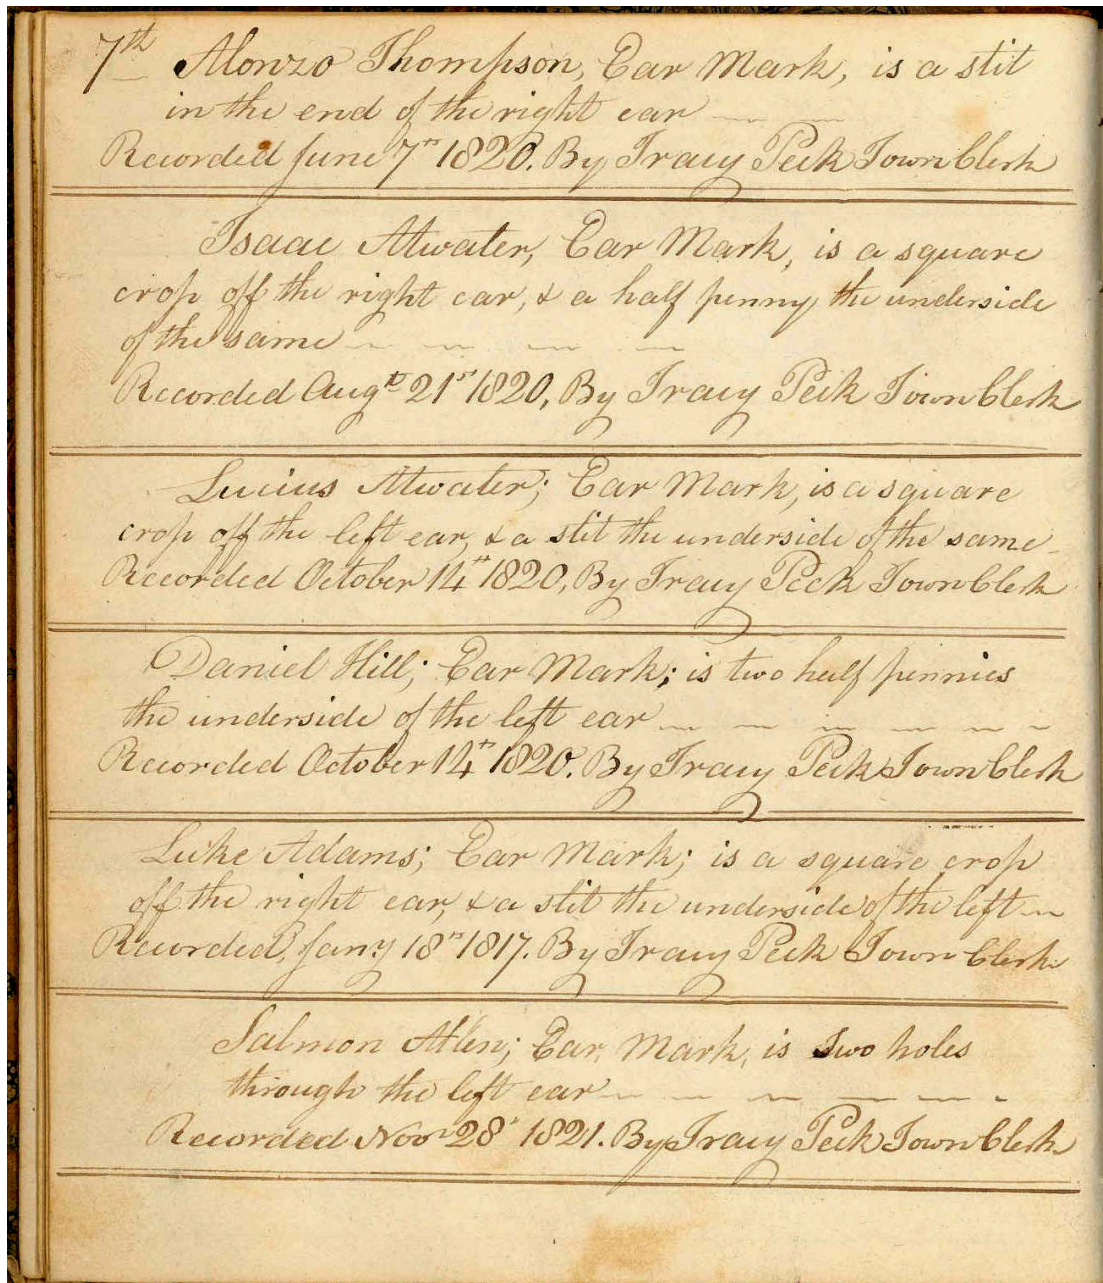 7th Alonzo Thompson, Ear Mark, is a slit
in the end of the right ear
Recorded June 7th 1820. By Tracy Peck Town Clerk
Isaac Atwater, Ear Mark, is a square
crop off the right ear, & a half penny the underside
of the same
Recorded Augt 21st 1820, By Tracy Peck Town Clerk
Lucius Atwater; Ear Mark, is a square
crop off the left ear, & a slit the underside of the same
Recorded October 14th 1820, By Tracy Peck Town Clerk
Daniel Hill; Ear Mark; is two half pennies
the underside of the left ear
Recorded October 14th 1820. By Tracy Peck Town Clerk
Luke Adams; Ear Mark; is a square crop
off the right ear, & a slit the underside of the left
Recorded, Jany 18th 1817. By Tracy Peck Town Clerk
Salmon Allen; Ear Mark, is Two holes
through the left ear
Recorded Novr 28th 1821. By Tracy Peck Town Clerk